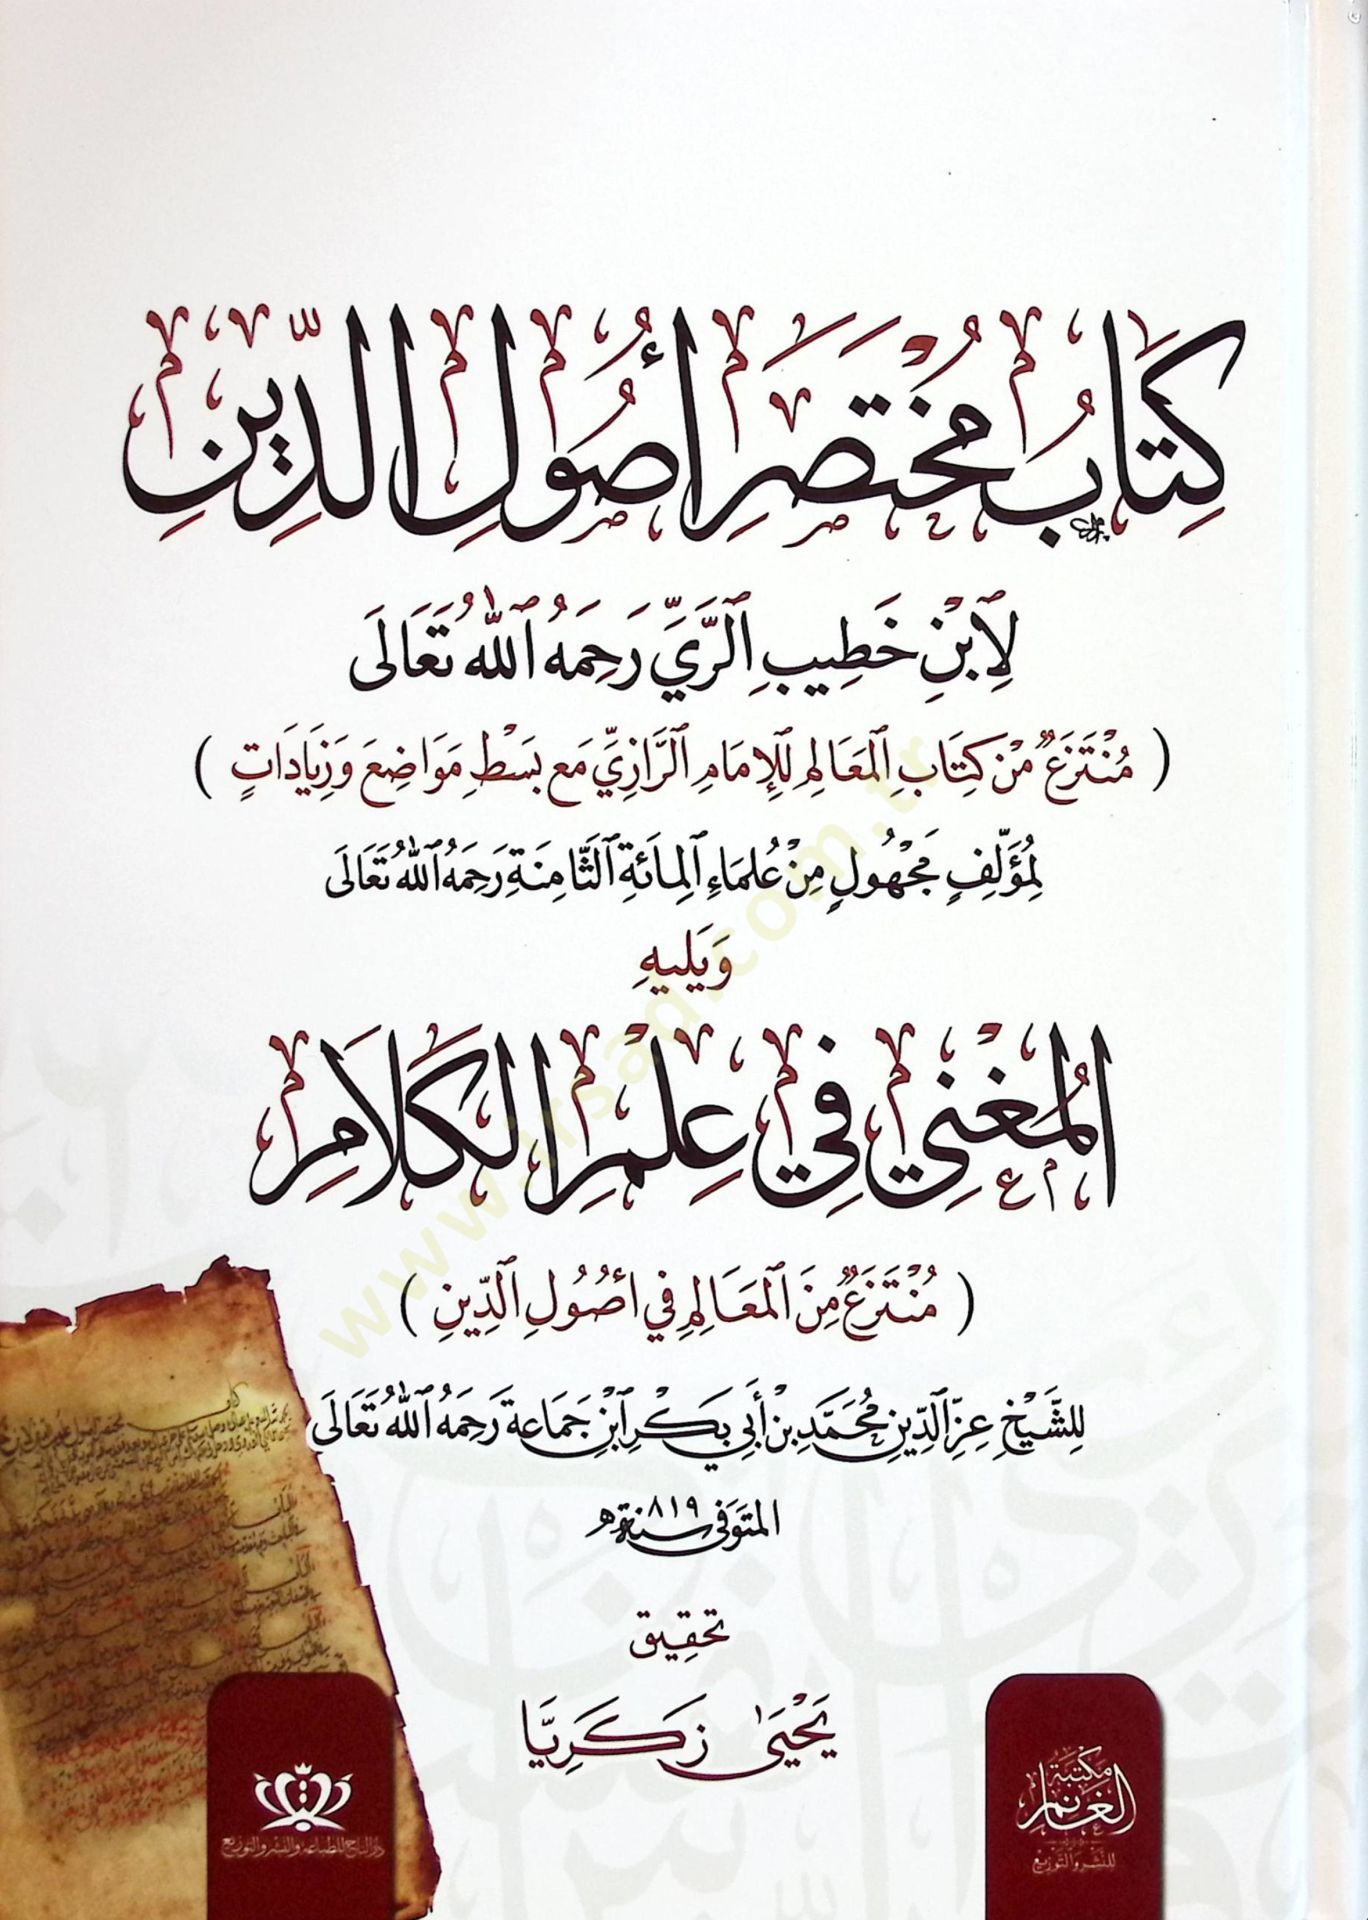 كِتَابُ مُخْتَصَرِ أُصُولِ الدِّينِ
لِابْنِ خَطِيبِ الرَّيِّ رَحِمَهُ اللهُ تَعَالَى
( مُنْتَزَعٌ مِنْ كِتَابِ الْمَعَالِمِ لِلْإِمَامِ الرَّازِيِّ مَعَ بَسْطِ مَوَاضِعَ وَزِيَادَاتٍ )
لِمُؤَلِّفٍ مَجْهُولٍ مِنْ عُلَمَاءِ الْمِائَةِ الثَّامِنَةِ رَحِمَهُ اللهُ تَعَالَى
وَيَلِيهِ
الْمُغْنِي فِي عِلْمِ الْكَلَامِ
( مُنْتَزَعٌ مِنَ الْمَعَالِمِ فِي أُصُولِ الدِّينِ )
لِلشَّيْخِ عِزِّ الدِّينِ مُحَمَّدِ بْنِ أَبِي بَكْرِ ابْنِ جَمَاعَةَ رَحِمَهُ اللهُ تَعَالَى
المتوفى سنة ٨١٩هـ
تحقيق
يَحْيَى زَكَرِيَّا
مكتبة
الغانم
للنشر والتوزيع
دار التاج للطباعة والنشر والتوزيع
www.irsad.com.tr